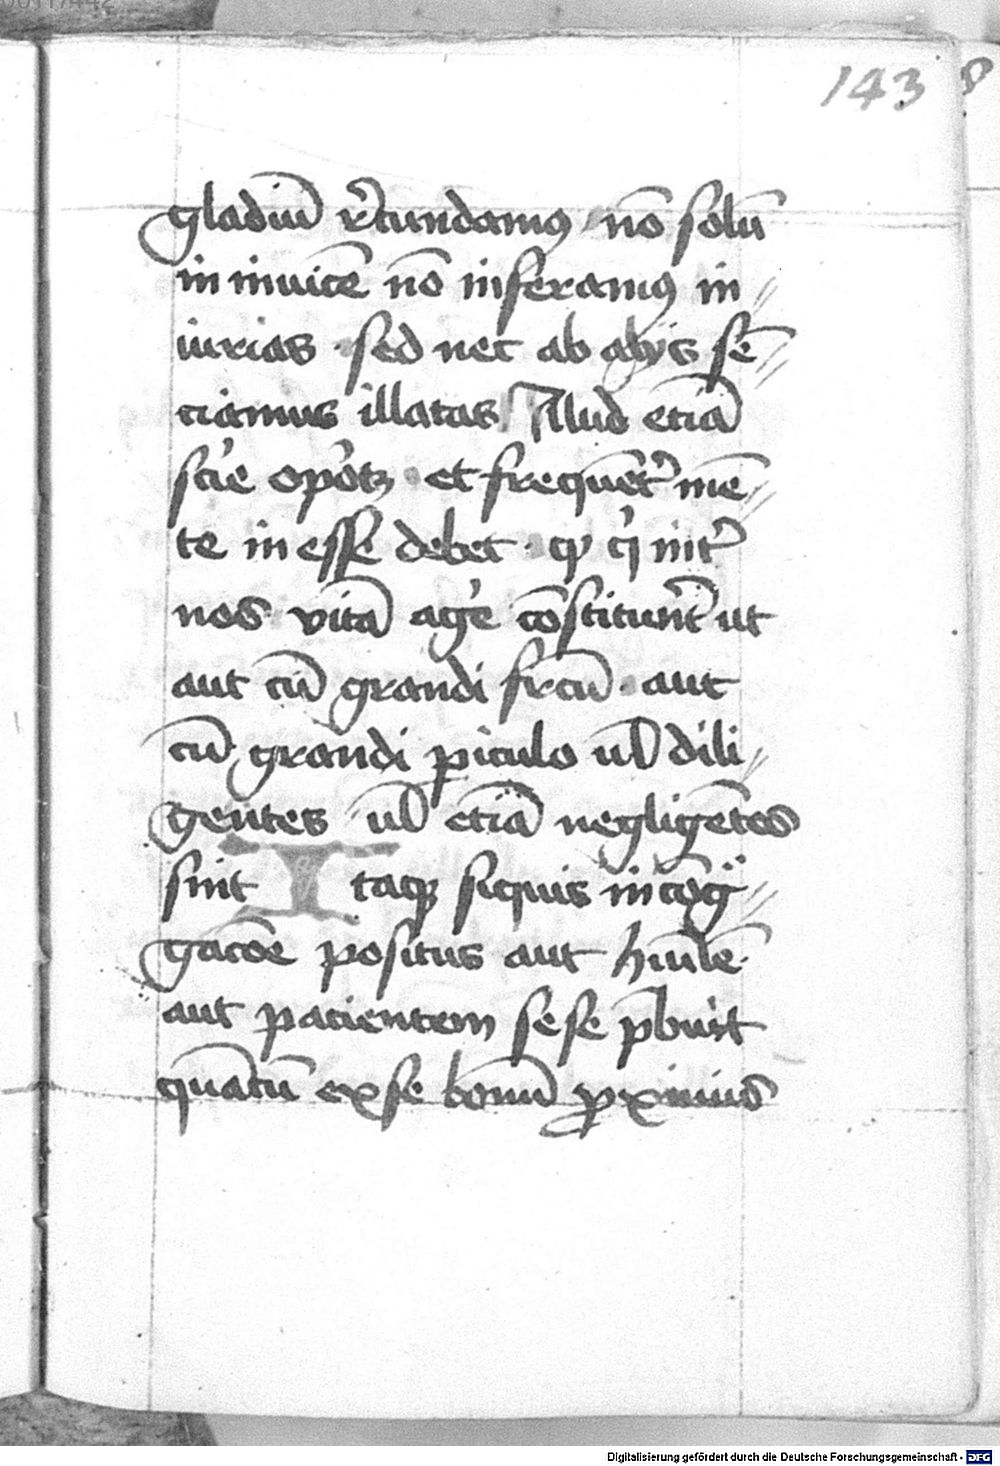 143
gladiū r̄tundamus nō solū
in invicē nō inferamus in
iurias · sed nec ab alijs sē
ciamus illatas Illud etiā
scir̄e oportꝫ · et frequēt̄ mē
te in esse debet · ꝙ qͥ int̄
nos vitā aḡe cōstituūt ut
aut cū grandi fr̄cū · aut
cū grandi ꝑiculo ul̄ dili
gentes ul̄ etiā negligētes
sint Itaqꝫ siquis in cōḡ
gacōe positus aut hūilē
aut patientem sese p̄buit
quātū ex se bonū ꝓximis
Digitalisierung gefördert durch die Deutsche Forschungsgemeinschaft - DFG